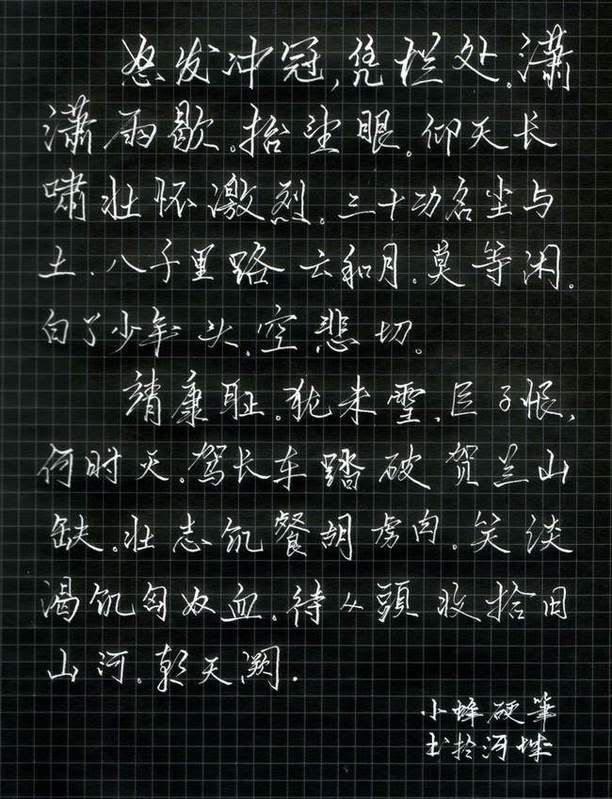 怒发冲冠,凭栏处。潇
潇雨歇。抬望眼。仰天长
啸壮怀激烈。三十功名尘与
土.八千里路云和月。莫等闲。
白了少年头.空悲切。
靖康耻。犹未雪.臣子恨,
何时灭.驾长车踏破贺兰山
缺。壮志饥餐胡虏肉.笑谈
渴饥匈奴血。待从頭收拾旧
山河。朝天阙.
小蜂硬筆
书於河